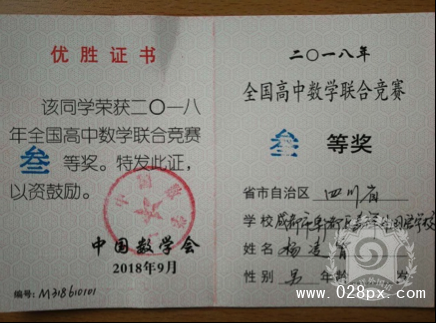 优胜证书
该同学荣获二〇一八
年全国高中数学联合竞赛
叁 等奖。特发此证,
以资鼓励。
中国数学会
中国数学会
2018年9月
编号: M318610101
二〇一八年
全国高中数学联合竞赛
叁 等奖
省市自治区 四川省
学校 成都市郫都区
姓名 杨凌
性别 男 年龄 岁
www.028px.com